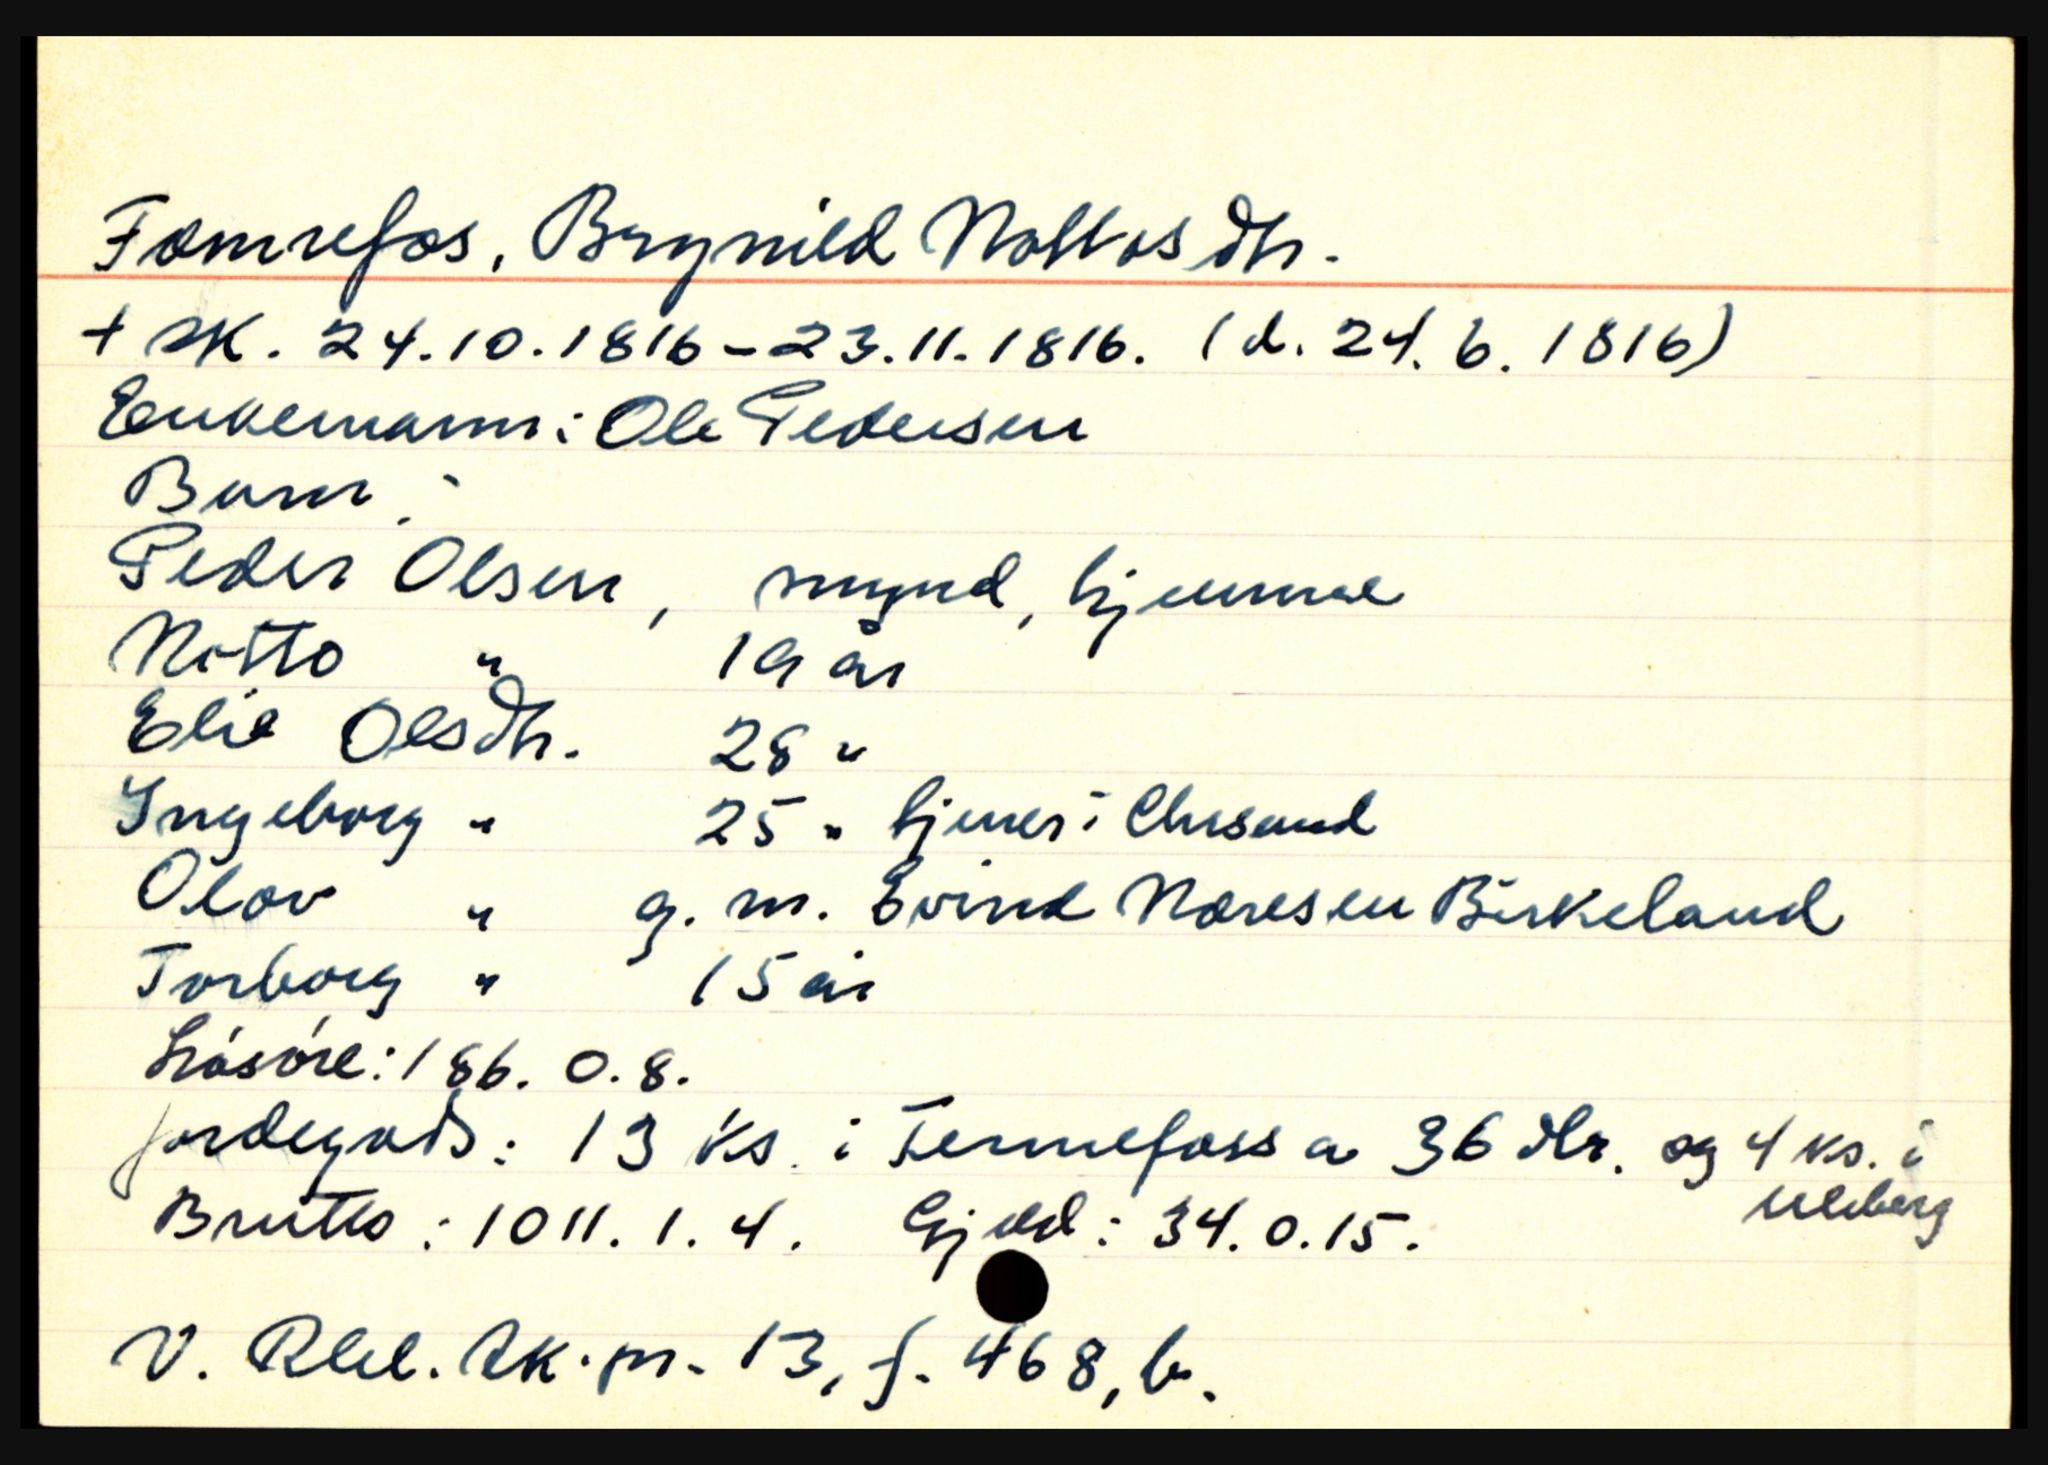 Fømrefos, Brynild Nottosdtr.
+ sk. 24.10.1816-23.11.1816. (d. 24.6.1816)
Enkemann: Ole Pedersen
Barn:
Peder Olsen, mynd, hjemme
Notto " 19 år
Elie Olsdtr. 28 "
Ingeborg " 25 " tjener i Chrsand
Olav " g. m. Evind Næresen Birkeland
Torborg " 15 år
Løsöre: 186. 0. 8.
Jordegods: 13 ks. i Femrefoss a 36 dlr. og 4 ks. i
Uleberg
Brutto: 1011. 1. 4. Gjeld: 34. 0. 15.
V. Rbl. sk. pr. 13, f. 468, b.